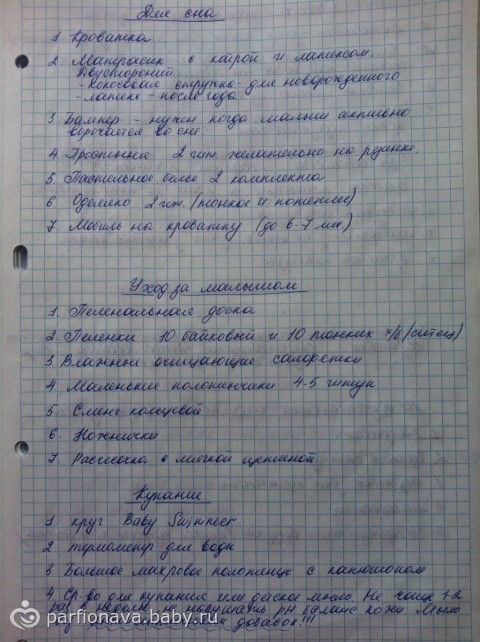 Для сна
1. Кроватка
2. Матрасик с каирой и латексом.
Двусторонний
- кокосовая стружка - для новорожденного
- латекс - после года.
3. Бампер - нужен когда малыш активно
ворочается во сне
4 Простынки 2 шт. желательно на резинке
5. Постельное белье 2 комплекта
6. Одеяло 2 шт. (тонкое и потеплее)
7 Мобиль на кроватку (до 6-7 мес)
Уход за малышом
1. Пеленальная доска
2 Пеленки 10 байковый и 10 тонких х/б (ситец)
3. Влажные очищающие салфетки
4 Маленькие полотенчики 4-5 штук
5. Слинг кольцевой
6. Ножнички
7. Расчесочка с мягкой щетиной
Купание
1 круг Baby Swimmer
2 термометр для воды
3. Большое махровое полотенце с капюшоном
4. Ср-во для купания или детское мыло. Не чаще 1-2
раз в неделю не нарушать pH баланс кожи Мыло
добавок!!!
parfionava.baby.ru
parfionava.baby.ru